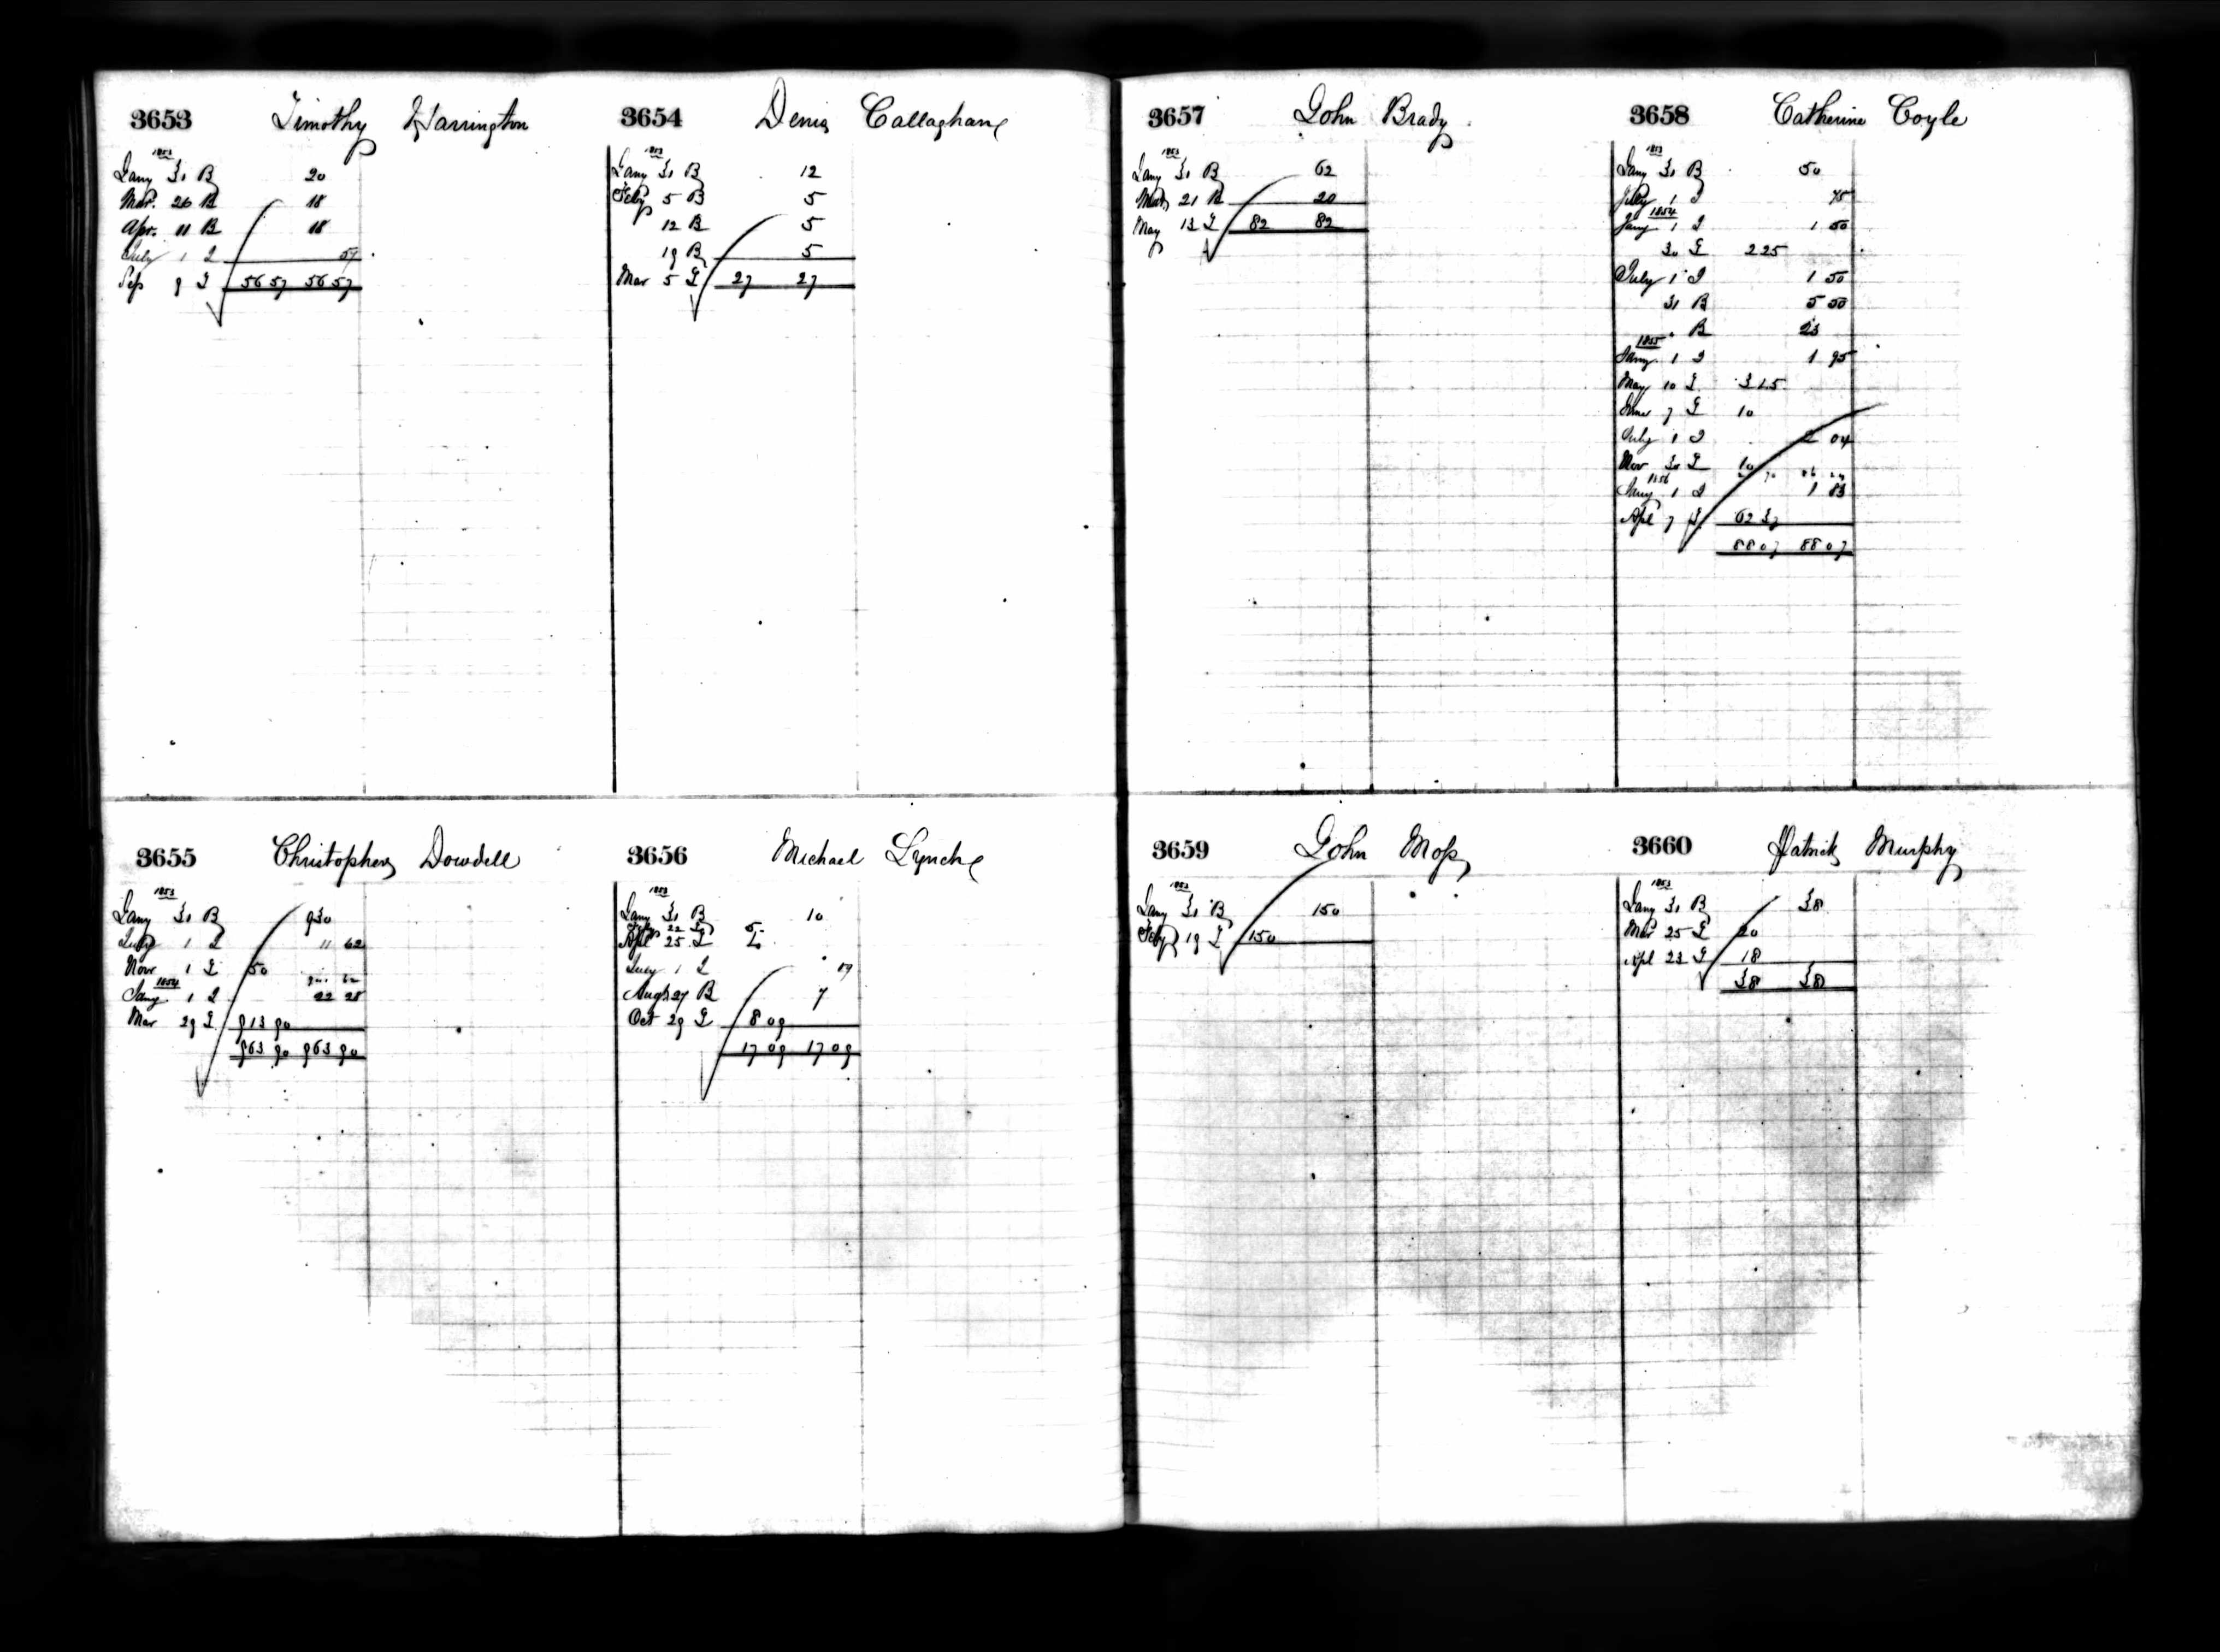 3653 Timothy Harrington
1853
Jany 31 B 20
Mar. 26 B 18
Apr. 11 B 18
July 1 I 57
Sep 9 L 56 57 56 57
3654 Denis Callaghan
1853
Jany 31 B 12
Feby 5 B 5
12 B 5
19 B 5
Mar 5 L 27 27
3655 Christopher Dowdell
1853
Jany 31 B 930
July 1 I 11 62
Novr 1 L 50
1854
Jany 1 I 22 28
Mar 29 L 913 90
963 90 963 90
3656 Michael Lynch
1853
Jany 31 B 10
Feby 22 L 5
Apl 25 L 4
July 1 I 09
Augt 27 B 7
Oct 29 L 8 09
17 09 17 09
3657 John Brady
1853
Jany 31 B 62
Mar 21 B 20
May 13 L 82 82
3658 Catherine Coyle
1853
Jany 31 B 50
July 1 I 75
1854
Jany 1 I 1 50
30 L 2 25
July 1 I 1 50
31 B 5 50
" B 23
1855
Jany 1 I 1 95
May 10 L 3 45
June 7 L 10
July 1 I 2 04
Nov 30 L 10
1856
Jany 1 I 1 83
Apl 7 L 62 37
88 07 88 07
3659 John Moss
1853
Jany 31 B 150
Feby 19 L 150
3660 Patrick Murphy
1853
Jany 31 B 38
Mar 25 L 20
Apl 23 L 18
38 38